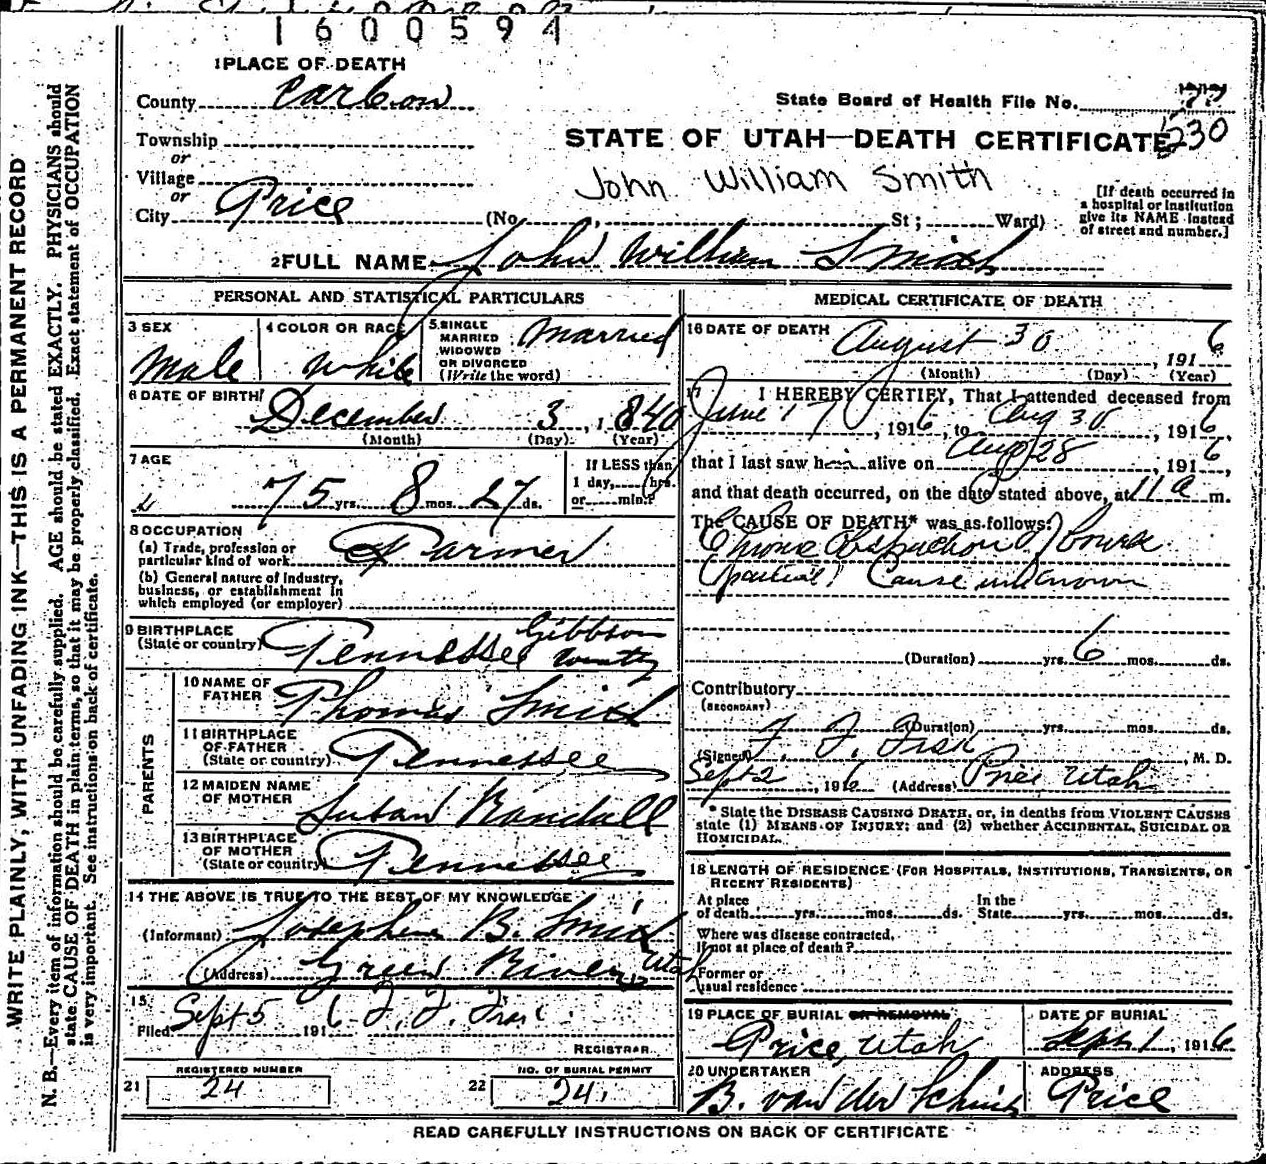 1600594
1 PLACE OF DEATH
County Carbon
State Board of Health File No. 230
Township
or
STATE OF UTAH—DEATH CERTIFICATE
Village
John William Smith
or
City Price (No. , St; Ward)
[If death occurred in
a hospital or institution
give its NAME instead
of street and number.]
2 FULL NAME John William Smith
PERSONAL AND STATISTICAL PARTICULARS
3 SEX
Male
4 COLOR OR RACE
White
5 SINGLE
MARRIED
WIDOWED
OR DIVORCED
(Write the word)
Married
6 DATE OF BIRTH
December 3, 1840
(Month) (Day) (Year)
7 AGE
75 yrs. 8 mos. 27 ds.
If LESS than
1 day, hrs.
or min.?
8 OCCUPATION
(a) Trade, profession or
particular kind of work
Farmer
(b) General nature of industry,
business, or establishment in
which employed (or employer)
9 BIRTHPLACE
(State or country)
Tennessee Gibbson
County
PARENTS
10 NAME OF
FATHER
Thomas Smith
11 BIRTHPLACE
OF FATHER
(State or country)
Tennessee
12 MAIDEN NAME
OF MOTHER
Susan Randall
13 BIRTHPLACE
OF MOTHER
(State or country)
Tennessee
14 THE ABOVE IS TRUE TO THE BEST OF MY KNOWLEDGE
(Informant) Josephine B. Smith
(Address) Green River Utah
15
Filed Sept 5 1916
REGISTRAR
REGISTERED NUMBER
21 24
NO. OF BURIAL PERMIT
22 24
MEDICAL CERTIFICATE OF DEATH
16 DATE OF DEATH
August 30, 1916
(Month) (Day) (Year)
17 I HEREBY CERTIFY, That I attended deceased from
June 17, 1916, to Aug 30, 1916,
that I last saw him alive on Aug 28, 1916,
and that death occurred, on the date stated above, at 11 a m.
The CAUSE OF DEATH* was as follows:
Chronic Obstruction of Bowels
(partial) Cause unknown
(Duration) yrs. 6 mos. ds.
Contributory
(SECONDARY)
(Duration) yrs. mos. ds.
(Signed) F. F. , M. D.
Sept 2, 1916 (Address) Price Utah
* State the DISEASE CAUSING DEATH, or, in deaths from VIOLENT CAUSES
state (1) MEANS OF INJURY; and (2) whether ACCIDENTAL, SUICIDAL OR
HOMICIDAL.
18 LENGTH OF RESIDENCE (FOR HOSPITALS, INSTITUTIONS, TRANSIENTS, OR
RECENT RESIDENTS)
At place
of death yrs. mos. ds.
In the
State yrs. mos. ds.
Where was disease contracted,
if not at place of death?
Former or
usual residence
19 PLACE OF BURIAL OR REMOVAL
Price, Utah
DATE OF BURIAL
Sept 1, 1916
20 UNDERTAKER
B. van der
ADDRESS
Price
READ CAREFULLY INSTRUCTIONS ON BACK OF CERTIFICATE
WRITE PLAINLY, WITH UNFADING INK—THIS IS A PERMANENT RECORD
N. B.—Every item of information should be carefully supplied. AGE should be stated EXACTLY. PHYSICIANS should
state CAUSE OF DEATH in plain terms, so that it may be properly classified. Exact statement of OCCUPATION
is very important. See instructions on back of certificate.